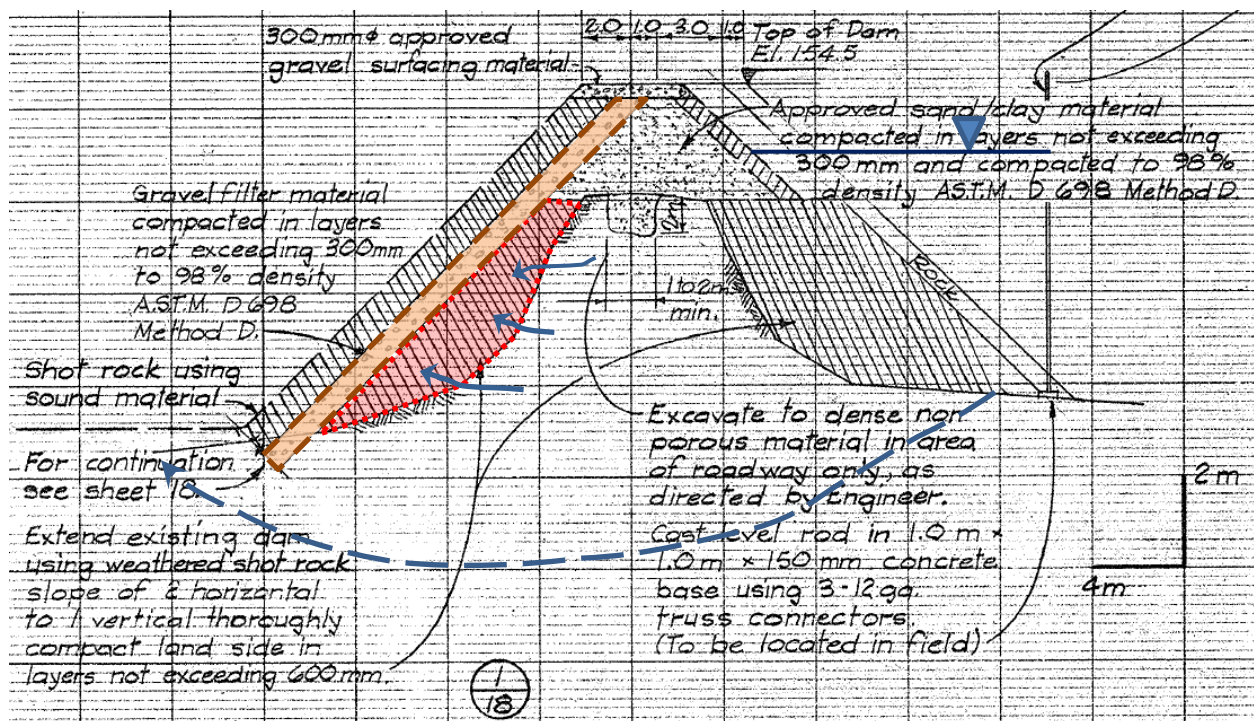 300mmϕ approved
gravel surfacing material
2.0 1.0 3.0 1.0
Top of Dam
El. 154.5
Approved sand/clay material
compacted in layers not exceeding
300 mm and compacted to 98%
density A.S.T.M. D 698 Method D.
Gravel filter material
compacted in layers
not exceeding 300mm
to 98% density
A.S.T.M. D 698
Method D.
2m
1 to 2m
min.
Rock
Shot rock using
sound material
For continuation
see sheet 18
Extend existing dam
using weathered shot rock
slope of 2 horizontal
to 1 vertical thoroughly
compact land side in
layers not exceeding 600mm.
Excavate to dense non
porous material in area
of roadway only, as
directed by Engineer.
Cast level rod in 1.0 m x
1.0 m x 150 mm concrete
base using 3-12 ga.
truss connectors.
(To be located in field)
2 m
4m
1
18